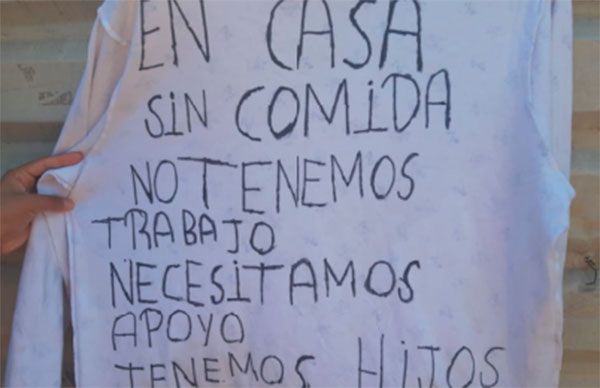 EN CASA
SIN COMIDA
NO TENEMOS
TRABAJO
NECESITAMOS
APOYO
TENEMOS HIJOS